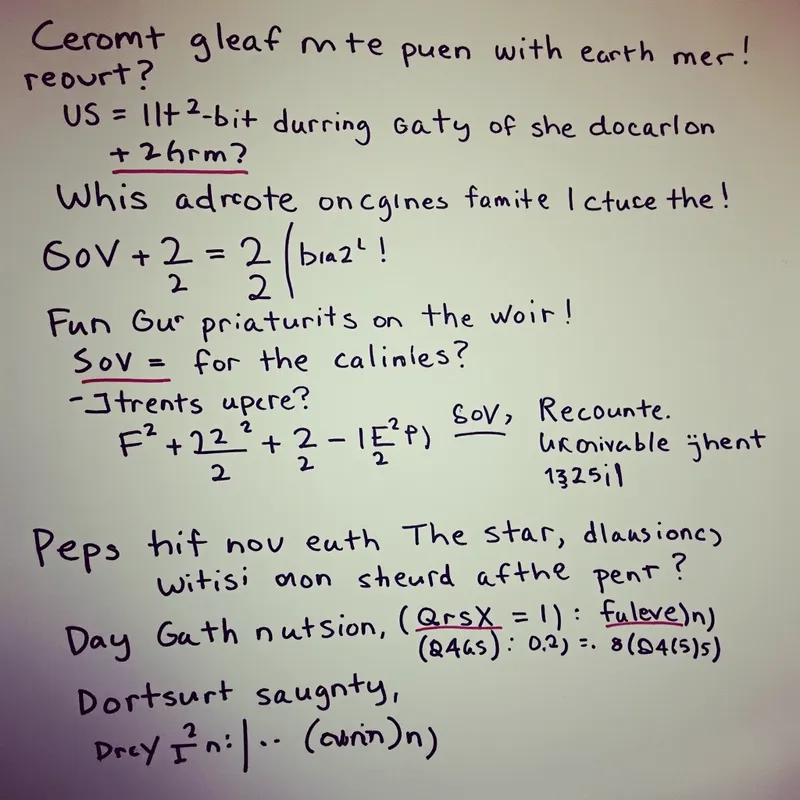 Ceromt gleaf mte puen with earth mer!
reourt?
US = 11t²-bit durring Gaty of she docarlon
+ 2hrm?
Whis adrcote oncgines famite l ctuce the!
GoV + 2/2 = 2/2 | bıa2ᴸ!
Fun Gur priaturits on the woir!
SoV = for the calinles?
-Jtrents upcre?
F² + 22²/2 + 2/2 - |E²P)/2 SoV, Recounte.
jhent
Peps hif nov euth The star, dlausioncs
witisi aon sheurd afthe pent?
Day Gath nutsion, (QrsX = 1): fuleve)n)
(Q4Gs): 0.2) =. 8(Q4(5)5)
Dortsurt saugnty,
Drcy I² n: | ·· n)